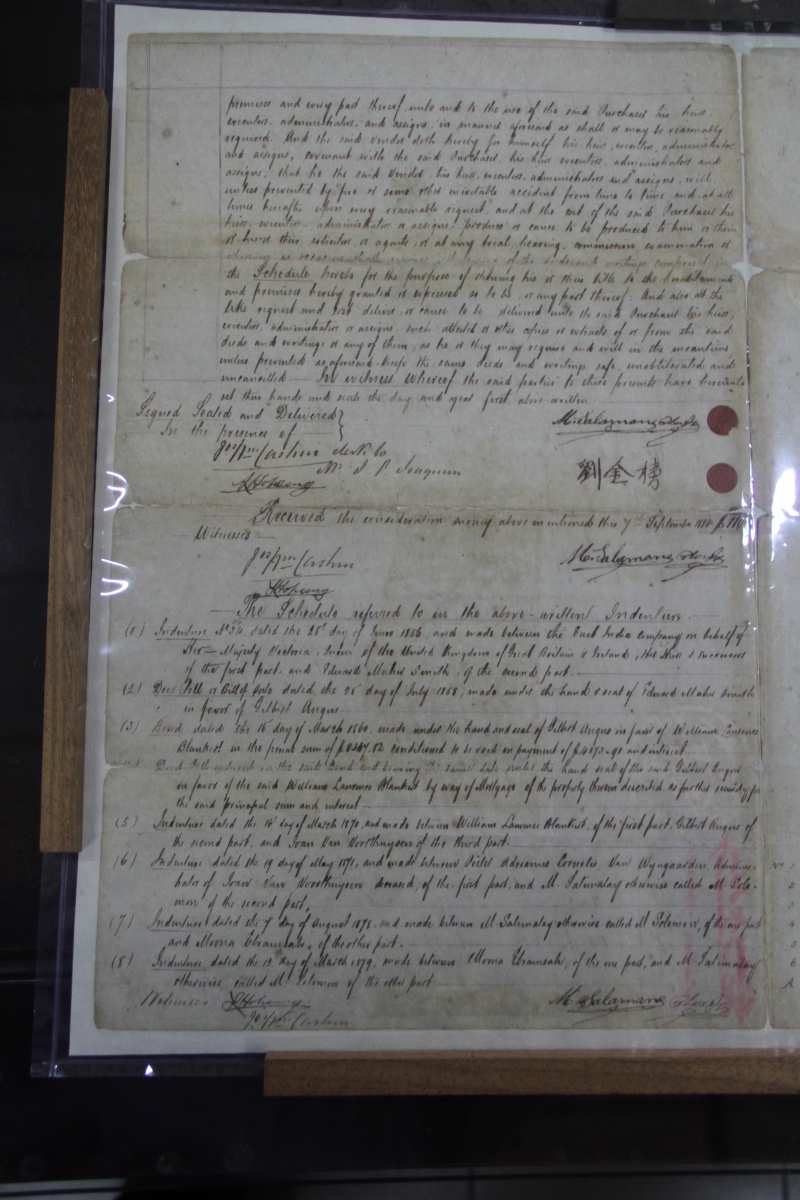 premises and every part thereof, unto and to the use of the said Purchaser his heirs
executors, administrators, and assigns in manner aforesaid as shall or may be reasonably
required. And the said Vendor doth hereby for himself his heirs, executors, administrators
and assigns, covenant with the said Purchaser, his heirs executors, administrators and
assigns, that he the said Vendor, his heirs, executors, administrators and assigns, will
unless prevented by fire or some other inevitable accident from time to time and at all
times hereafter upon every reasonable request, and at the cost of the said Purchaser his
heirs, executors, administrators or assigns produce or cause to be produced to him or them
or his or their solicitor, or agents, or at any trial, hearing, commission examination or
of the writings comprised in
the Schedule hereto for the purpose of shewing his or their title to the hereditaments
and premises hereby granted or expressed so to be, or any part thereof. And also at the
like request and cost deliver, or cause to be delivered unto the said Purchaser his heirs,
executors, administrators or assigns such attested or other copies or extracts of or from the said
deeds and writings or any of them, as he or they may require and will in the meantime
unless prevented as aforesaid keep the same deeds and writings safe, unobliterated and
uncancelled — In witness Whereof the said parties to these presents have hereunto
set their hands and seals the day and year first above written
Signed Sealed and Delivered
In the presence of
M. Salamana
Cashin
劉金榜
Received the consideration money above mentioned this 7th September
Witnesses
Cashin
M. Salamana
The Schedule referred to in the above-written Indenture.
(1) Indenture No 34 dated the 28th day of June and made between the East India Company on behalf of
Her Majesty Victoria, Queen of the United Kingdom of Great Britain & Ireland, Her Heirs & Successors
of the first part, and Edward Maher Smith, of the second part
(2) Deed Poll or Bill of Sale dated the 28 day of July 1858, made under the hand & seal of Edward Maher Smith
in favor of Gilbert Angus
(3) Bond dated the 15 day of March 1860, made under the hand and seal of Gilbert Angus in favor of William Lawrence
Blankist in the penal sum of conditioned to be void on payment of and interest.
Deed Poll the said Bond and bearing same date under the hand seal of the said Gilbert Angus
in favor of the said William Lawrence Blankist by way of Mortgage of the property therein described as further security for
the said principal sum and interest —
(5) Indenture dated the 16 day of March 1870, and made between William Lawrence Blankist, of the first part, Gilbert Angus of
the second part, and Ivan Van Voorthuysen of the third part.
(6) Indenture dated the 19 day of May 1871, and made between Adrianus Cornelis Van Wyngaarden, Adminis-
trator of Ivan Van Voorthuysen deceased, of the first part, and M. Satumalay otherwise called M. Solo-
mon of the second part,
(7) Indenture dated the 7th day of August 1871, and made between M. Satumalay otherwise called M. Solomon, of the one part
and Moona of the other part.
(8) Indenture dated the day of March 1879, made between Moona of the one part, and M. Satumalay
otherwise called M. Solomon of the other part
Witnesses
M. Salamana
Cashin
No 1
2
3
4
5
6